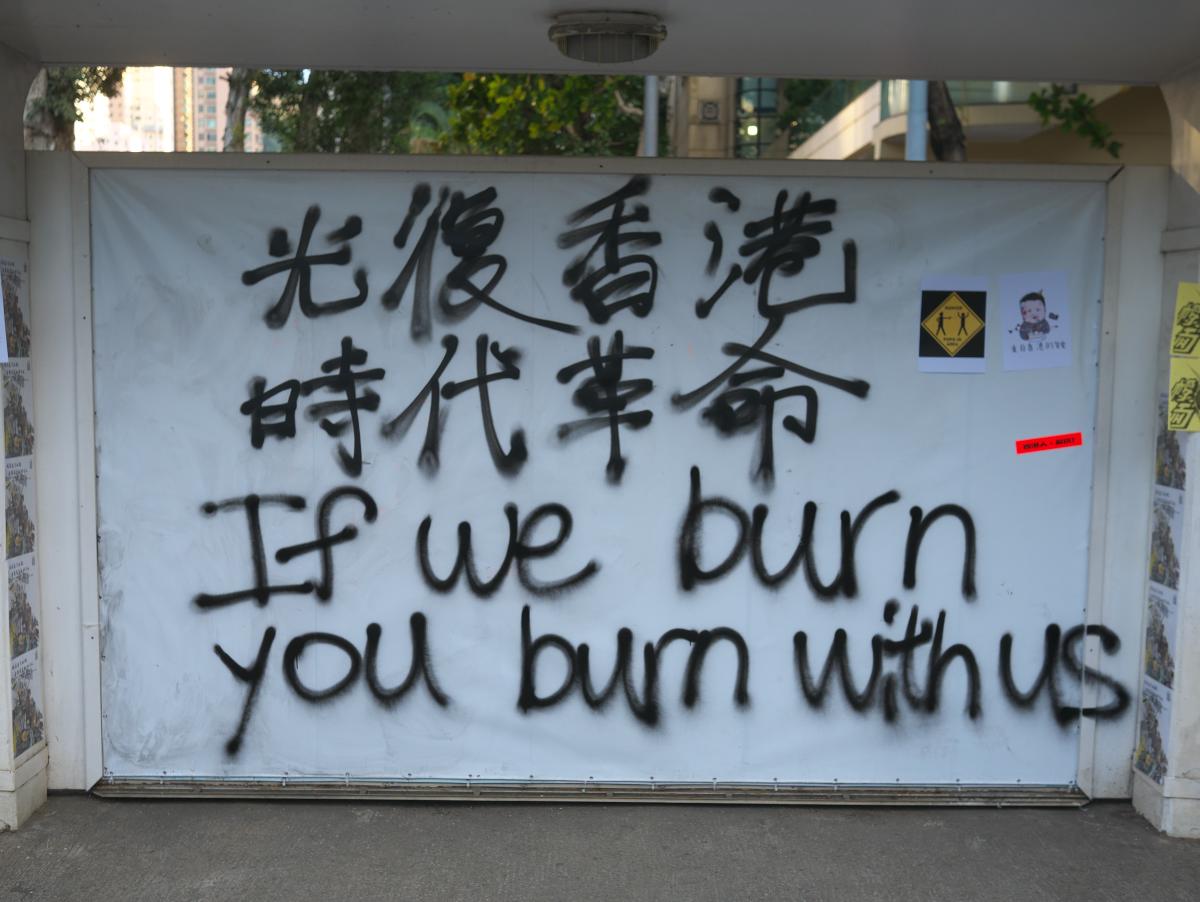 光復香港
時代革命
If we burn
you burn with us